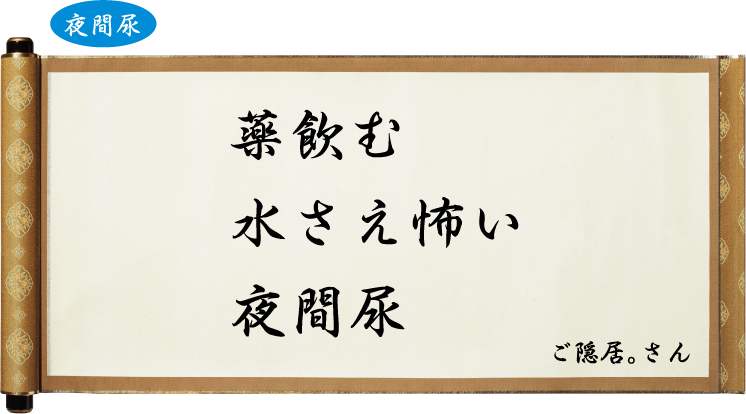 夜間尿
薬飲む
水さえ怖い
夜間尿
ご隠居。さん